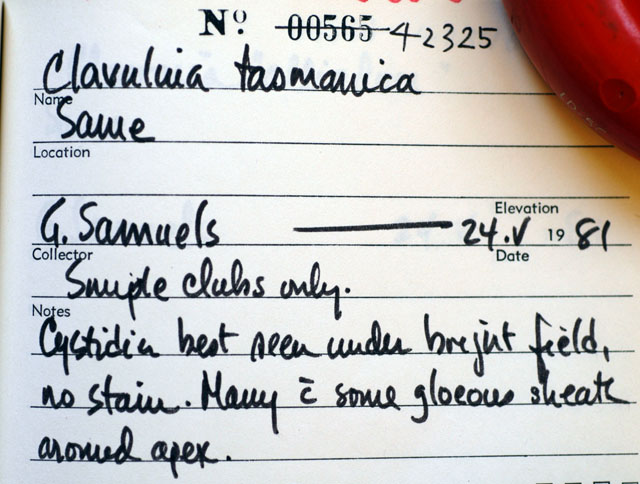 Nº 00565 42325
Clavulinia tasmanica
Name
Same
Location
Elevation
G. Samuels — 24.V 1981
Collector Date
Simple clubs only.
Notes
Cystidia best seen under bright field,
no stain. Many c̄ some gloeous sheath
around apex.